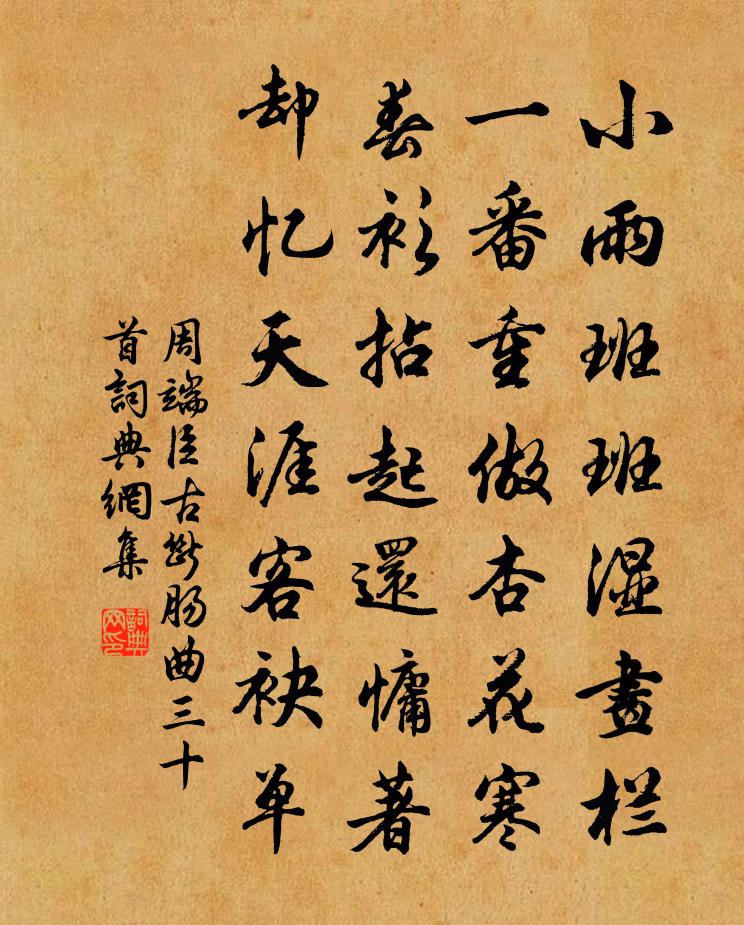 小雨班班湿畫栏
一番重做杏花寒
春衫拈起還慵著
却忆天涯客袂单
周端臣古斷腸曲三十
首詞典網集
詞典网印